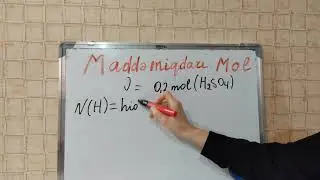 Maddəmiqdarı Mol
ν = 0,2 mol (H₂SO₄)
N(H) =